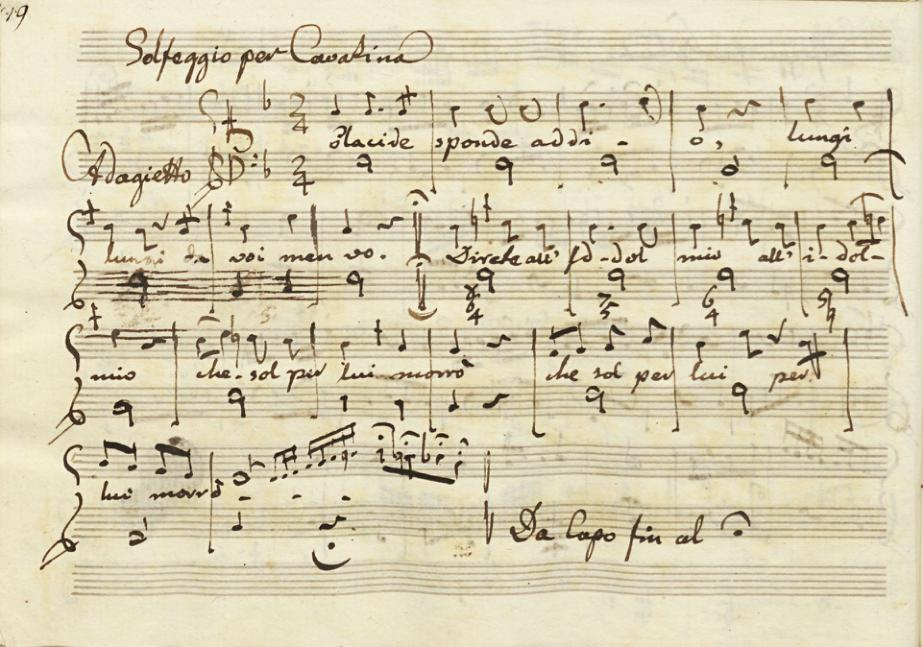 19
Solfeggio per Cavatina
2 4
Placide sponde addi - o, lungi
Adagietto 2 4
lungi da voi men vo. Direte all' Id - dol mio all' i - dol -
6 4
mio che - sol per lui morrò che sol per lui per
lui morrò - - -
Da Capo fin al